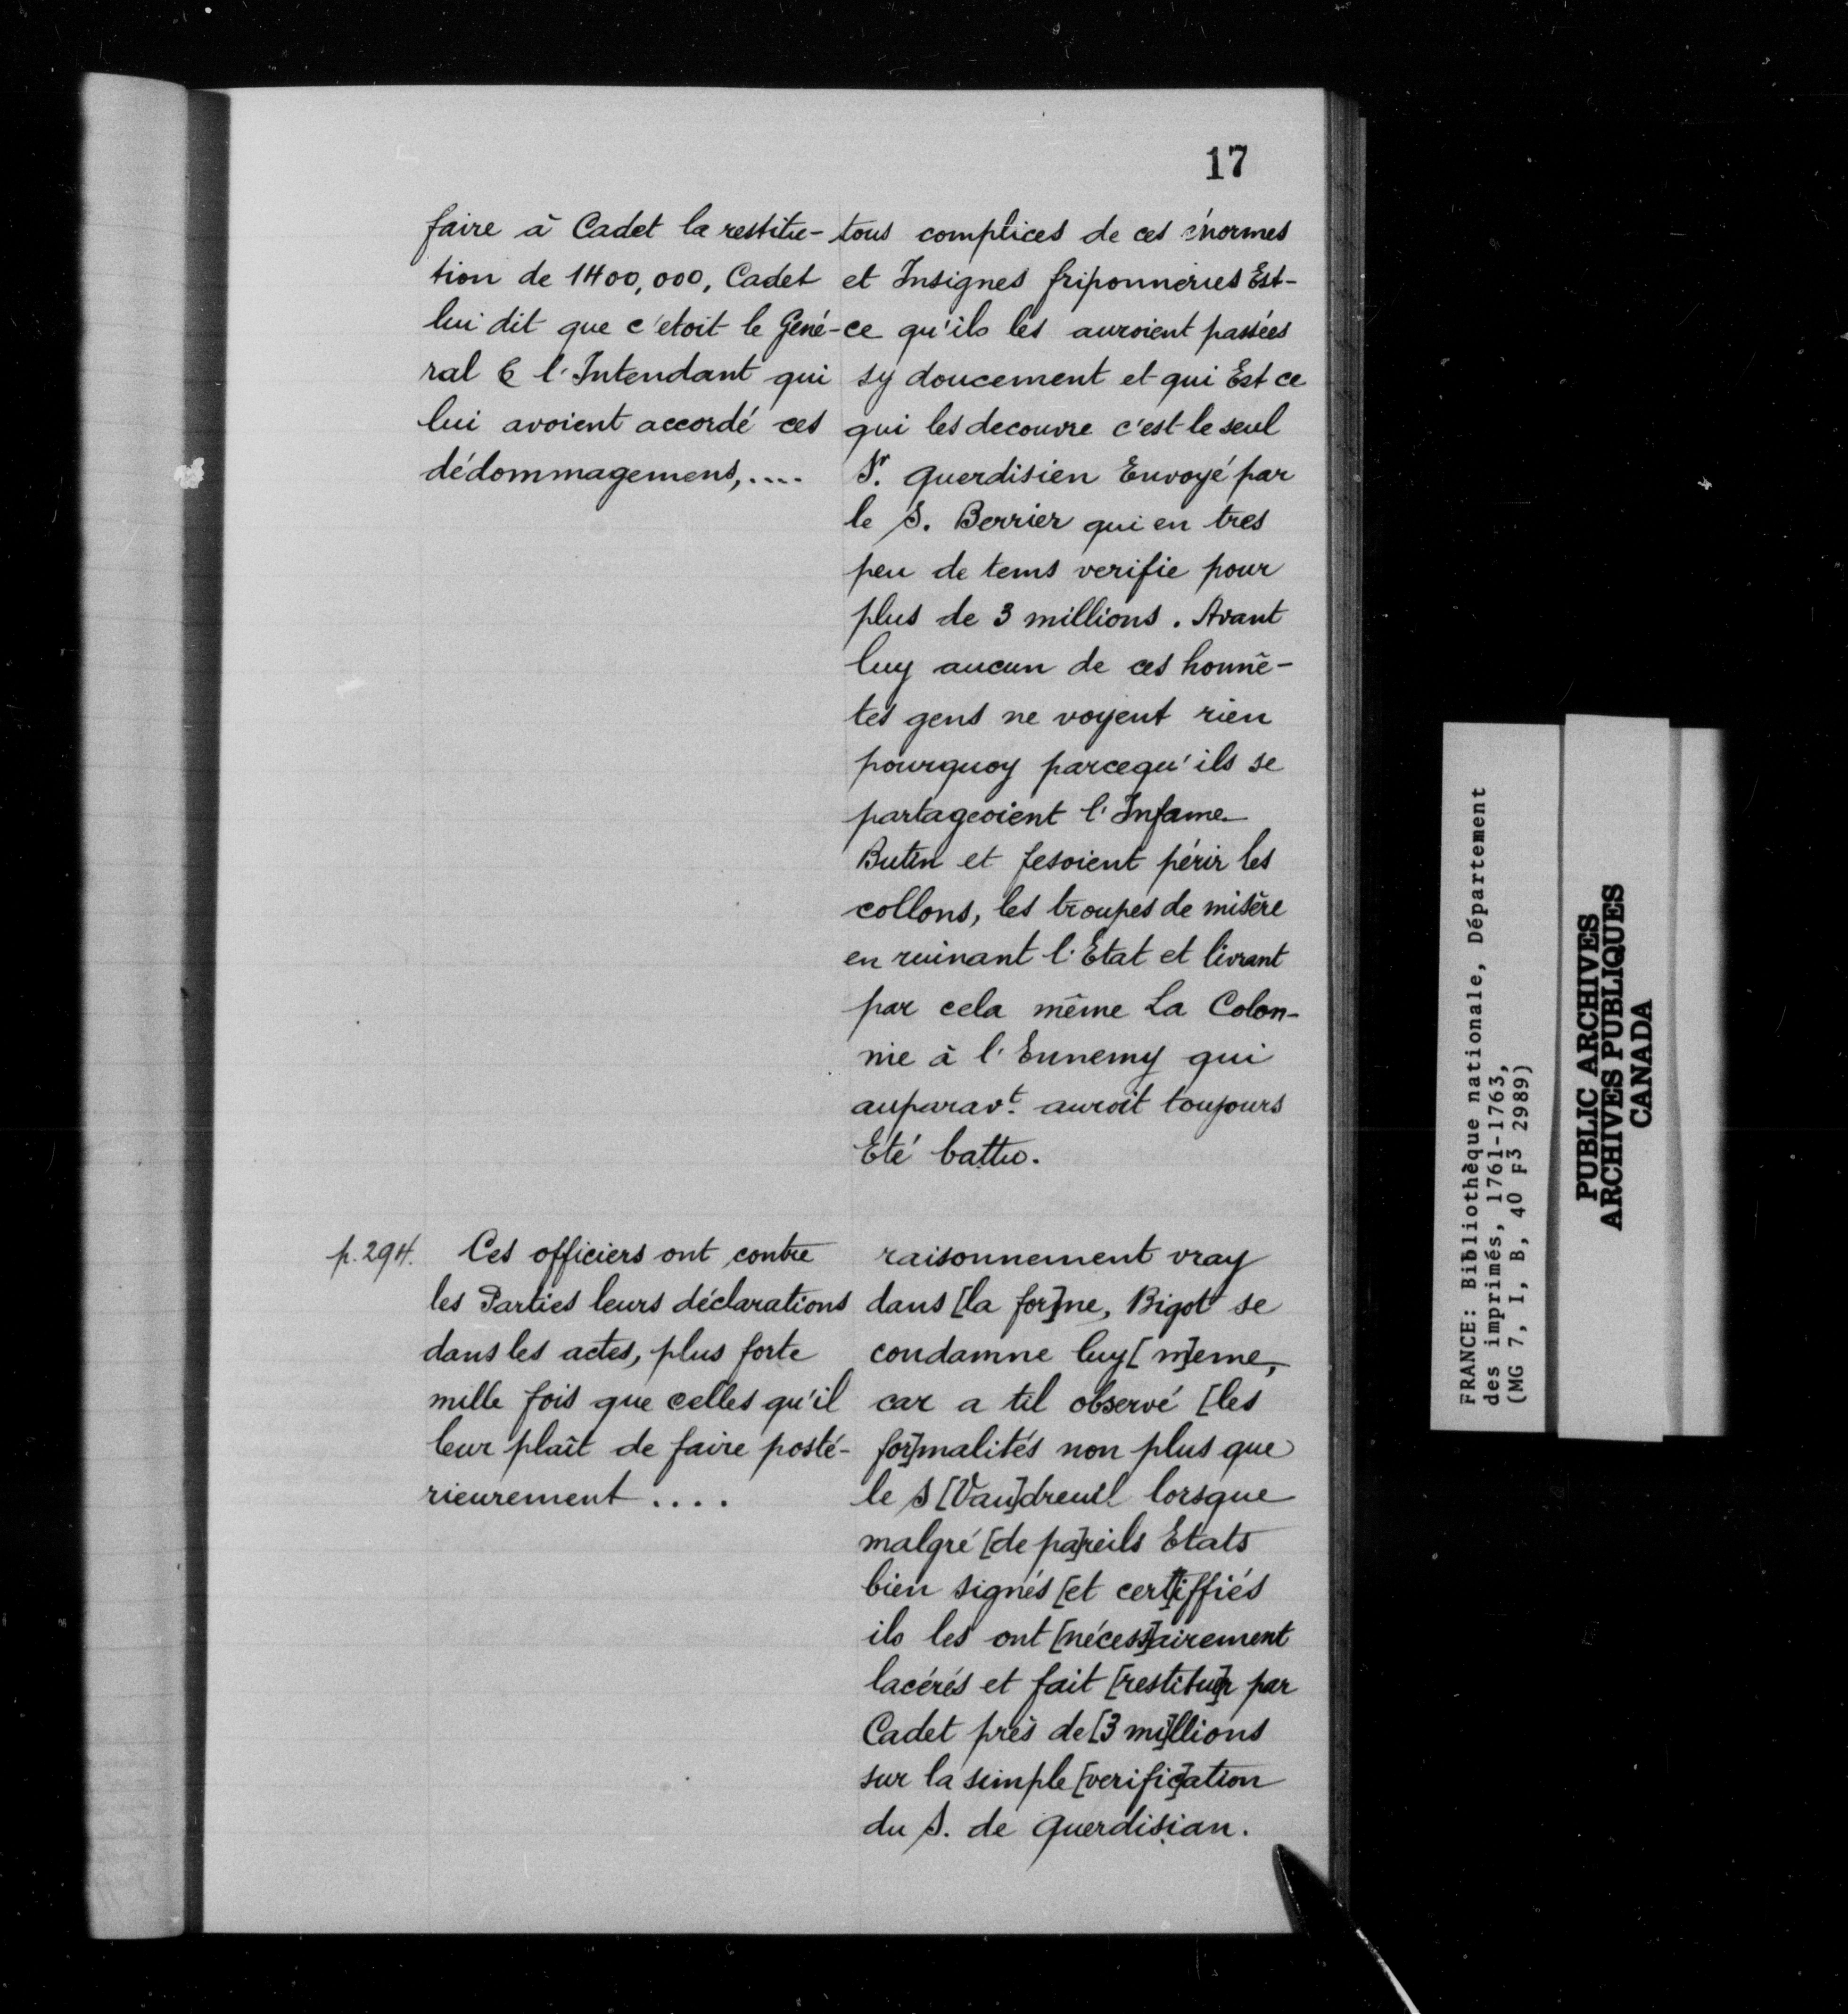 17
faire à Cadet la restitu-
tion de 1400,000, Cadet
lui dit que c'etoit le Géné-
ral & l'Intendant qui
lui avoient accordé ces
dédommagemens,....
tous complices de ces énormes
et Insignes friponneries Est-
ce qu'ils les auroient passées
sy doucement et qui Est ce
qui les decouvre c'est le seul
Sr. querdisien Envoyé par
le S. Berrier qui en tres
peu de tems verifie pour
plus de 3 millions. Avant
luy aucun de ces honnê-
tes gens ne voyent rien
pourquoy parcequ'ils se
partageoient l'Infame
Butin et fesoient périr les
collons, les troupes de misère
en ruinant l'Etat et livrant
par cela même La Colon-
nie à l'Ennemy qui
auparavt. auroit toujours
Eté battu.
p. 294.
Ces officiers ont contre
les Parties leurs déclarations
dans les actes, plus forte
mille fois que celles qu'il
leur plaît de faire posté-
rieurement ....
raisonnement vray
dans [la for]me, Bigot se
condamne luy [m]eme,
car a til observé [les
for]malités non plus que
le S [Vau]dreuil lorsque
malgré [de pa]reils Etats
bien signés [et cert]iffiés
ils les ont [nécess]airement
lacérés et fait [restitue]r par
Cadet près de [3 mi]llions
sur la simple [verific]ation
du S. de querdisian.
FRANCE: Bibliothèque nationale, Département
des imprimés, 1761-1763,
(MG 7, I, B, 40 F3 2989)
PUBLIC ARCHIVES
ARCHIVES PUBLIQUES
CANADA